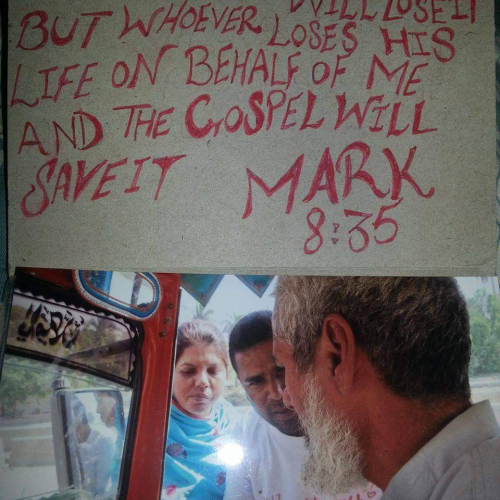 WILL LOSE IT
BUT WHOEVER LOSES HIS
LIFE ON BEHALF OF ME
AND THE GOSPEL WILL
SAVE IT MARK
8:35